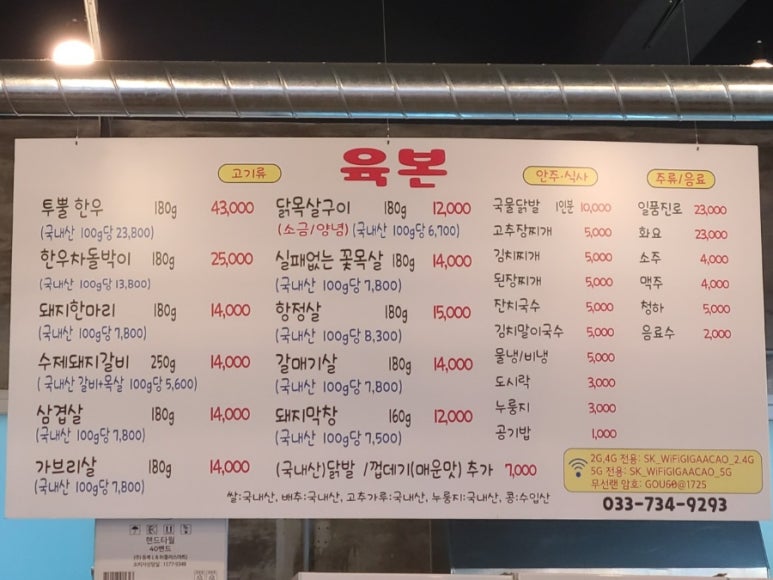 육본
고기류
투뿔 한우 180g 43,000
(국내산 100g당 23,800)
한우차돌박이 180g 25,000
(국내산 100g당 13,800)
돼지한마리 180g 14,000
(국내산 100g당 7,800)
수제돼지갈비 250g 14,000
(국내산 갈비+목살 100g당 5,600)
삼겹살 180g 14,000
(국내산 100g당 7,800)
가브리살 180g 14,000
(국내산 100g당 7,800)
닭목살구이 180g 12,000
(소금/양념) (국내산 100g당 6,700)
실패없는 꽃목살 180g 14,000
(국내산 100g당 7,800)
항정살 180g 15,000
(국내산 100g당 8,300)
갈매기살 180g 14,000
(국내산 100g당 7,800)
돼지막창 160g 12,000
(국내산 100g당 7,500)
(국내산)닭발 /껍데기(매운맛) 추가 7,000
안주·식사
국물닭발 1인분 10,000
고추장찌개 5,000
김치찌개 5,000
된장찌개 5,000
잔치국수 5,000
김치말이국수 5,000
물냉/비냉 5,000
도시락 3,000
누룽지 3,000
공기밥 1,000
주류/음료
일품진로 23,000
화요 23,000
소주 4,000
맥주 4,000
청하 5,000
음료수 2,000
2G,4G 전용: SK_WiFiGIGAACAO_2.4G
5G 전용: SK_WiFiGIGAACAO_5G
무선랜 암호: GOU68@1725
쌀:국내산, 배추:국내산, 고추가루:국내산, 누룽지:국내산, 콩:수입산
033-734-9293
핸드타월
40밴드